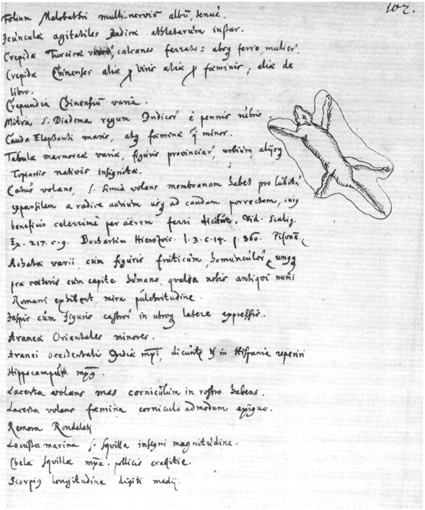 102.
Folium Malabathri multinervis albū, tenue.
Icunculæ agitatiles Indicæ athletarum instar.
Crepida Turcica calcaneo ferrato: absq ferro, mulier.
Crepida Chinenses aliæ viris aliæ fœminis; aliæ de
libro.
Crepundia Chinensiū varia.
Mitra s. Diadema regum Indicor è pennis rubris
Cauda Elephanti maris, atq fœminæ minor.
Tabula marmorea varia, figuris provinciar, urbium aliisq
Topiariis nativis insignita.
Catus volans, s. Simia volans membranam habet pro
expansilem a radice aurium usq ad caudam porrectam, cuius
beneficio celerrime per aërem ferri dicitur. vid. Scalig.
Ex. 217. c. 9. Bochartum Hierozoic. l. 3. c. 14. p. 860. Pisonē
Achatæ varii, cum figuris fruticum,
cum capite humano, nobis antiqui numi
Romani exhibent, mira pulchritudine.
Iaspis cum figuris castror in utroq latere expressis.
Aranea Orientales minores.
Aranei Occidentalis Indiæ dicunt in Hispania reperiri
Hippocampus
Lacerta volans mas corniculum in rostro habens.
Lacerta volans fœmina corniculo admodum exiguo.
Remora Rondeletij
Locusta marina s. Squilla insigni magnitudine.
Chela Squillæ pollicis crassitie.
Scorpius longitudine digiti medij